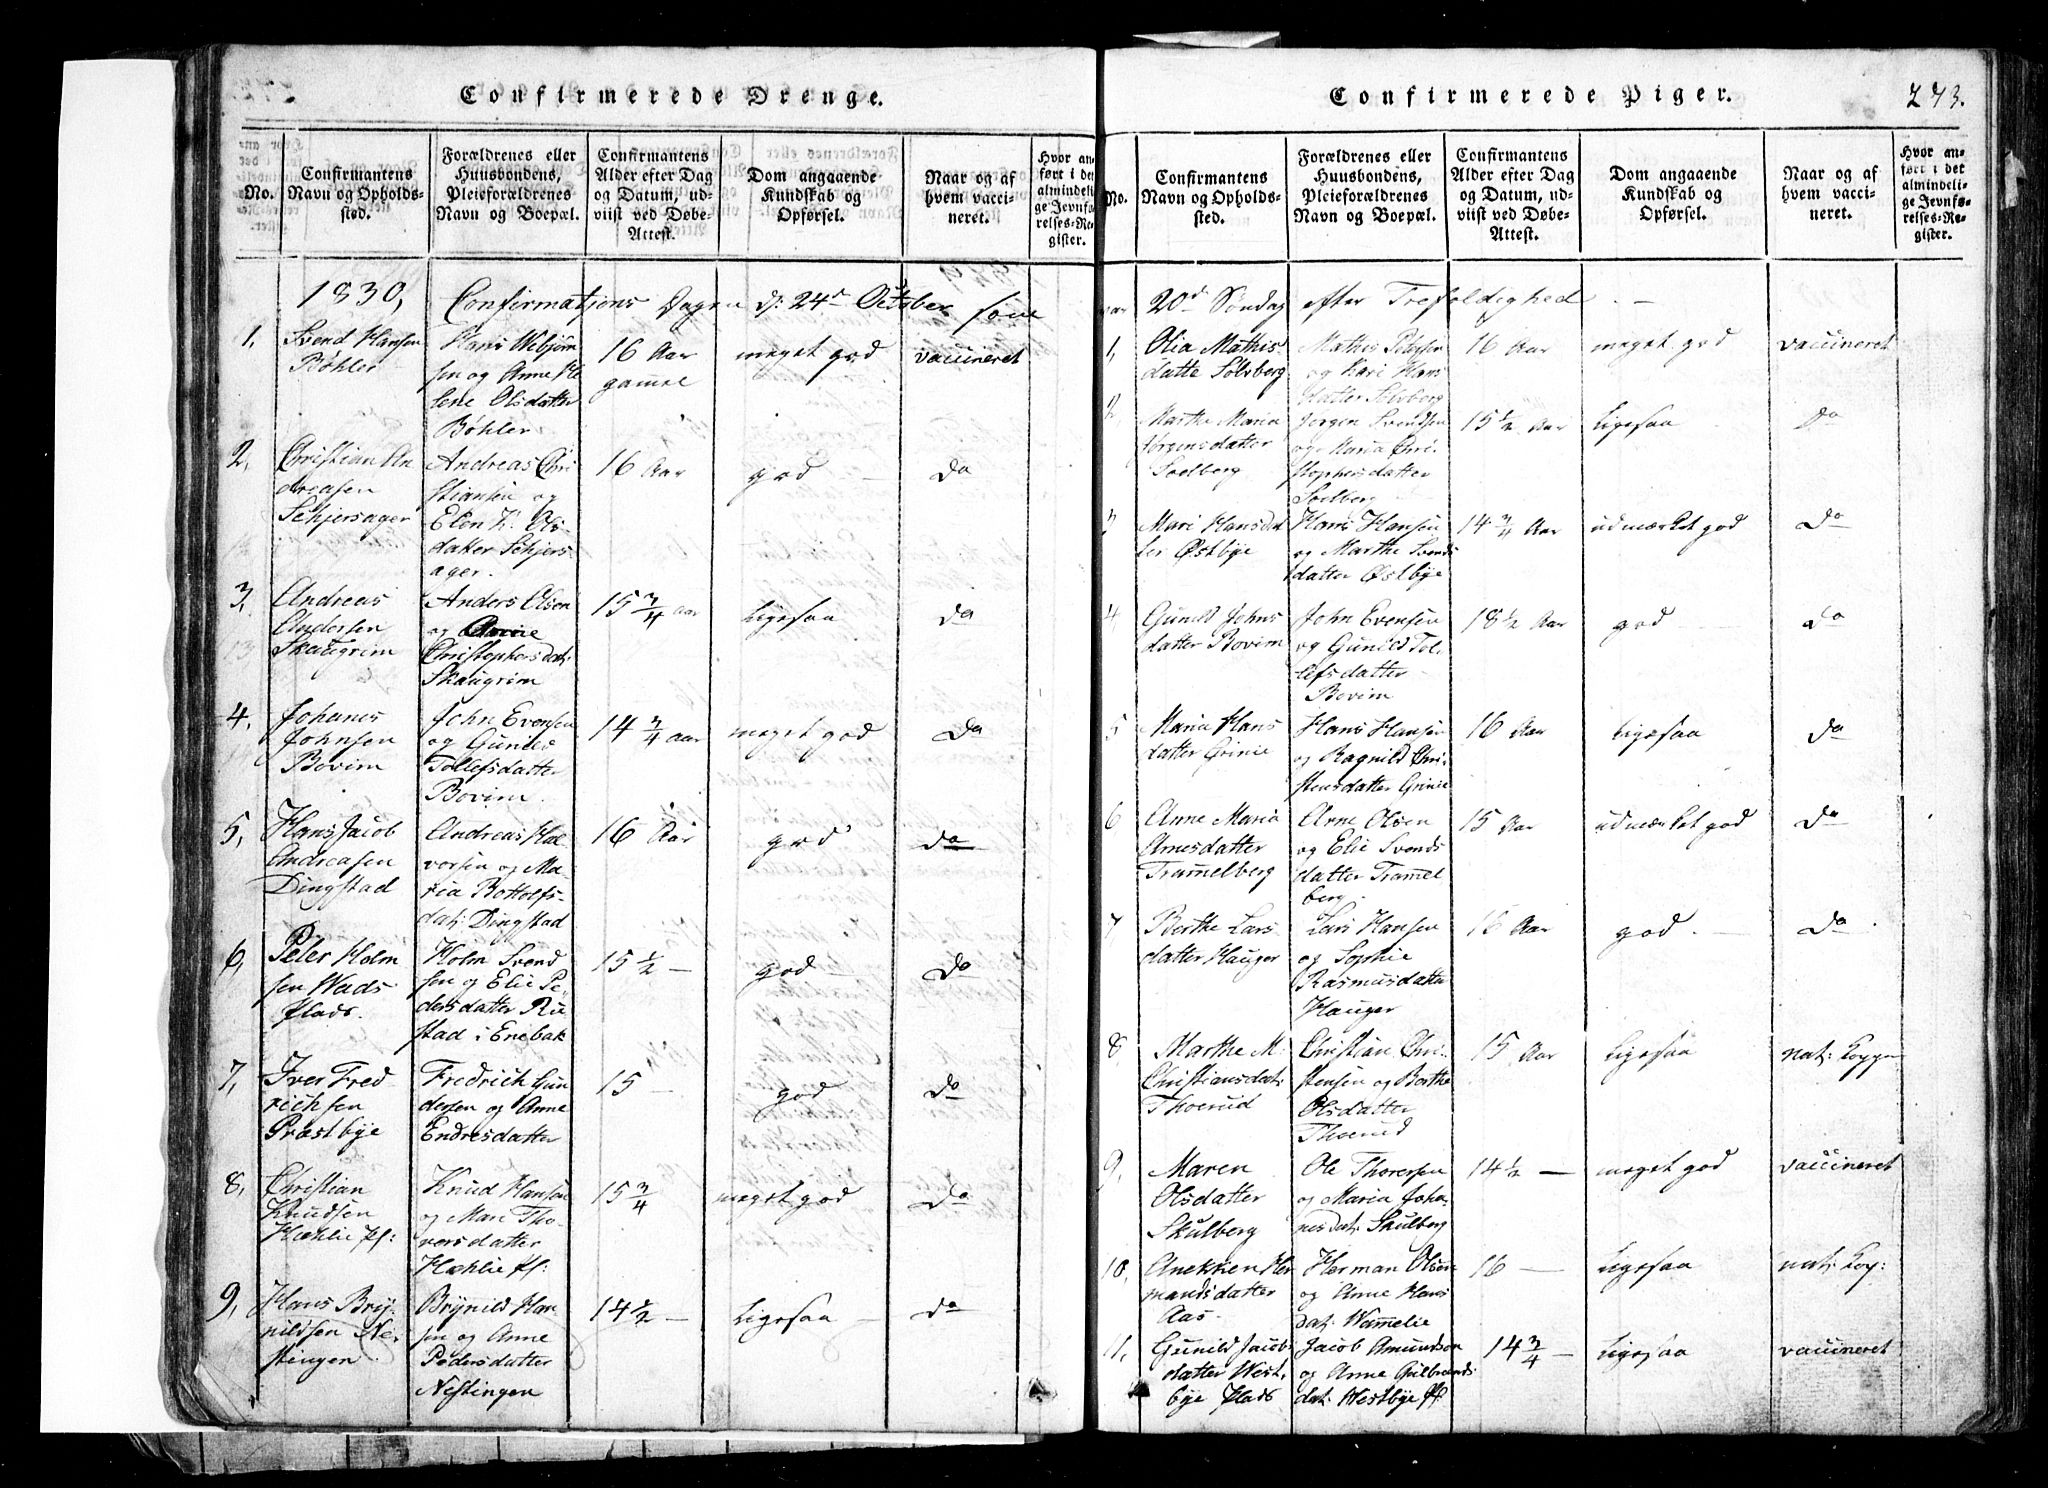 Confirmerede Drenge.
No.
Confirmantens
Navn og Opholds-
sted.
Forældrenes eller
Huusbondens,
Pleieforældrenes
Navn og Boepæl.
Confirmantens
Alder efter Dag
og Datum, ud-
viist ved Døbe-
Attest.
Dom angaaende
Kundskab og
Opførsel.
Naar og af
hvem vacci-
neret.
Hvor an-
ført i det
almindeli-
ge Jevnfø-
relses-Re-
gister.
1830, Confirmations Dagen d: 24de October som
1, Svend Hansen
Bøhler
Hans Webjørn
sen og Anne He
lene Olsdatter
Bøhler
16 Aar
gammel
meget god
vaccineret
2, Christian An
dreasen
Schjersager
Andreas Chri
stiansen og
Elen K. Ols
datter Schjers-
ager.
16 Aar
god
Do
3, Andreas
Andersen
Skaugrim
Anders Olsen
og Anne
Christophersdat:
Skaugrim
15 3/4 Aar
ligesaa
Do
4, Johanes
Johnsen
Bovim
John Evensen
og Gunild
Tollefsdatter
Bovim.
14 3/4 Aar
meget god
Do
5, Hans Jacob
Andreasen
Dingstad
Andreas Hal
vorsen og Ma-
ria Bottolfs-
dat: Dingstad
16 Aar
god
Do
6, Peter Holm
sen Wads
Plads.
Holm Svend
sen og Elie Pe-
dersdatter Ru-
stad i Enebak
15 1/2 —
god
Do
7, Iver Fred
richsen
Præstbye
Fredrich Gun
dersen og Anne
Endresdatter
15 —
god
Do
8, Christian
Knudsen
Hæhlie Pl:
Knud Hansen
og Mari Tho-
versdatter
Hæhlie Pl:
15 3/4
meget god
Do
9, Hans Bry-
nildsen Ne-
stingen
Brynild Han
sen og Anne
Pedersdatter
Nestingen
14 1/2 —
ligesaa
Do
Confirmerede Piger.
273.
No.
Confirmantens
Navn og Opholds-
sted.
Forældrenes eller
Huusbondens,
Pleieforældrenes
Navn og Boepæl.
Confirmantens
Alder efter Dag
og Datum, ud-
viist ved Døbe-
Attest.
Dom angaaende
Kundskab og
Opførsel.
Naar og af
hvem vacci-
neret.
Hvor an-
ført i det
almindeli-
ge Jevnfø-
relses-Re-
gister.
var 20de Søndag efter Trefoldighed. —
1, Olia Mathis-
datte Solberg
Mathis
og Kari Hans
datter Solberg
16 Aar
meget god
vaccineret
2 Marthe Maria
Jørgensdatter
Soelberg
Jørgen Svendsen
og Maria Chri-
stophersdatter
Soelberg
15 1/2 Aar
ligesaa
Do
3 Mari Hansdat
ter Østbye
Hans Hansen
og Marthe Svends
datter Østbye
14 3/4 Aar
udmærket god
Do
4 Gunild Johns
datter Bovim
John Evensen
og Gunild Tol-
lefsdatter
Bovim
18 1/2 Aar
god
Do
5 Maria Hans
datter Grinie
Hans Hansen
og Ragnild Chri-
stensdatter Grinie
16 Aar
ligesaa
Do
6 Anne Maria
Arnesdatter
Trammelberg
Arne Olsen
og Elie Svends
datter Trammel
berg.
15 Aar
udmærket god
Do
7 Berthe Lars
datter Hauger
Lars Hansen
og Sophie
Rasmusdatter
Hauger
16 Aar
god.
Do
8 Marthe M:
Christiansdat:
Thoerud
Christian Chri-
stensen og Berthe
Olsdatter
Thoerud
15 Aar
ligesaa
nat: Kopper
9, Maren
Olsdatter
Skulberg
Ole Thoresen
og Maria Joha-
nesdat: Skulberg
14 1/2 —
meget god
vaccineret
10, Anekken Her
mandsdatter
Aas.
Herman Olsen
og Anne Hans
dat: Wammelie
16 —
ligesaa
nat: Kop:
11, Gunild Jacobs
datter West-
bye Plads
Jacob Amundsen
og Anne Gulbrands
dat: Westbye Pl.
14 3/4 —
ligesaa
vaccineret